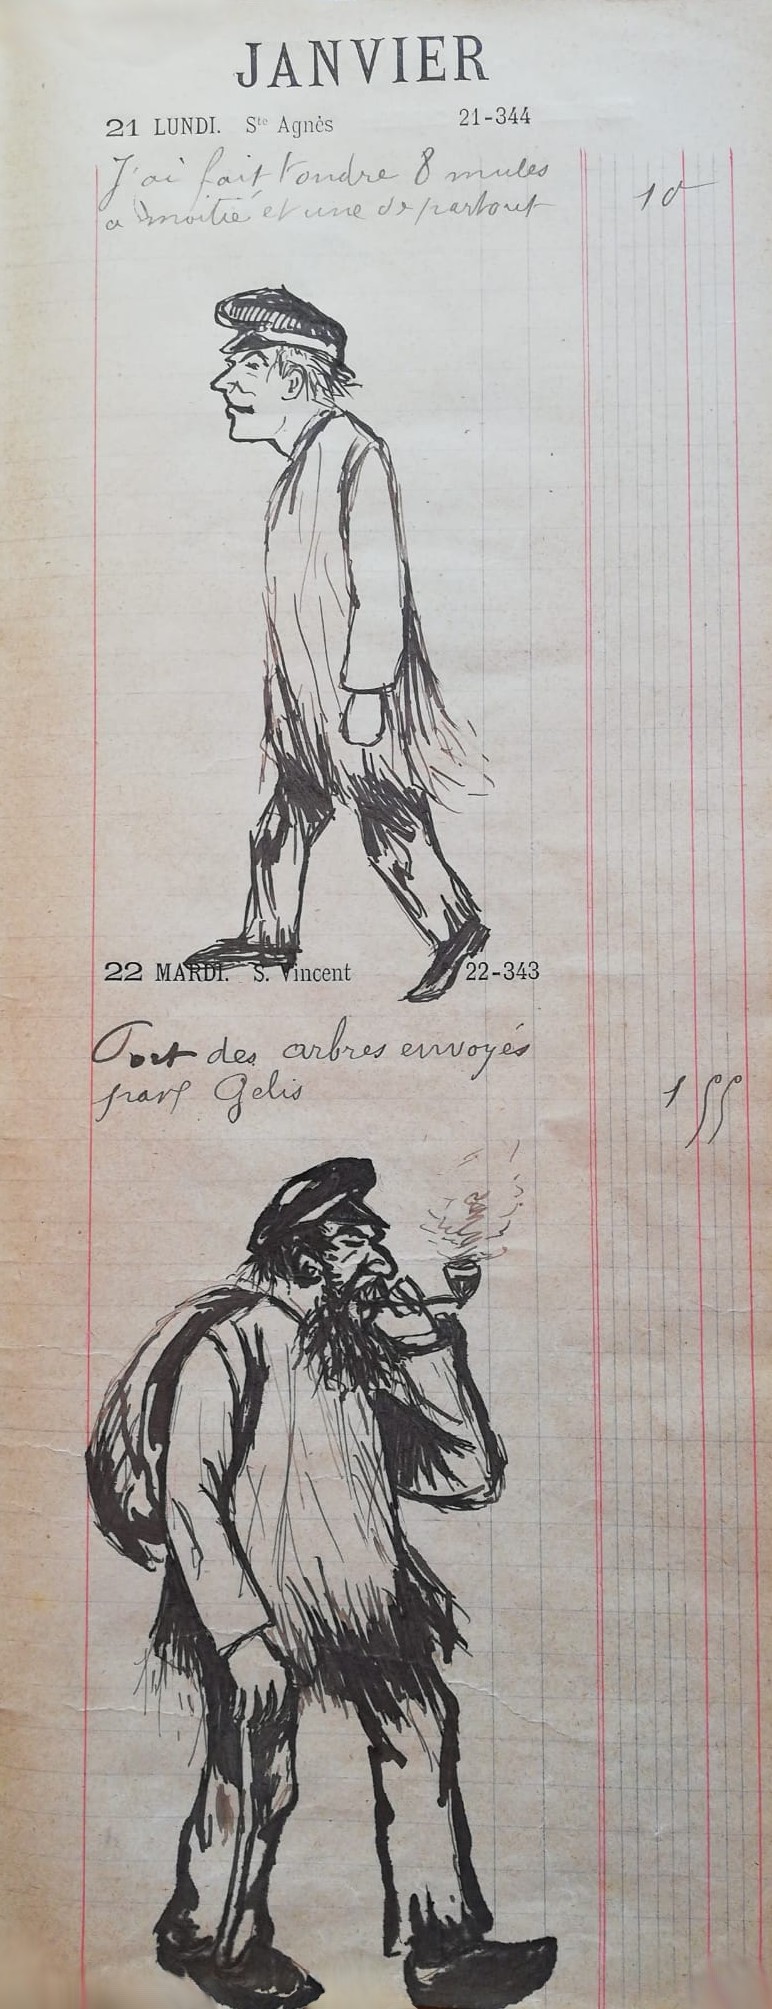 JANVIER
21 LUNDI. Ste Agnès 21-344
J'ai fait tondre 8 mules
a moitié et une de partout 10
22 MARDI. S. Vincent 22-343
Port des arbres envoyés
par Gelis 1 55